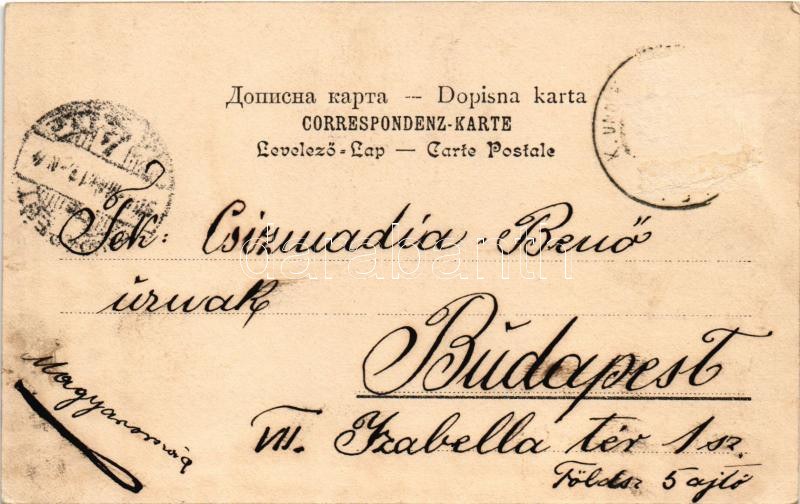 Дописна карта — Dopisna karta
CORRESPONDENZ-KARTE
Levelező-Lap — Carte Postale
Tek: Csizmadia Benő
úrnak
Budapest
Magyarország
VII. Izabella tér 1 sz.
Földsz 5 ajtó
darabanth